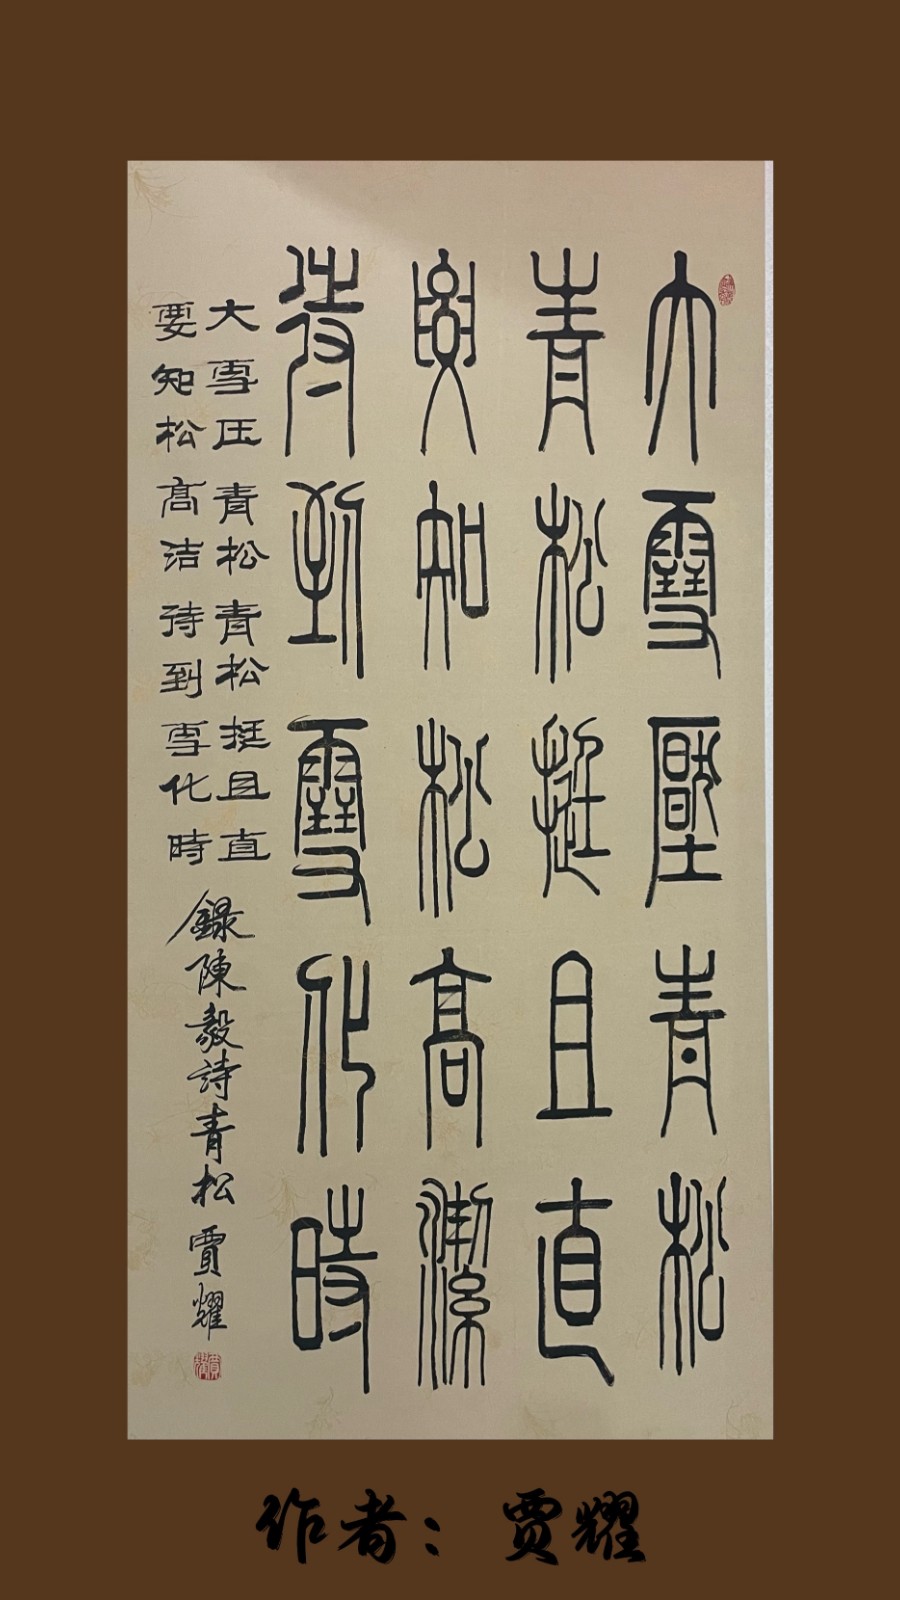 大雪壓青松
青松挺且直
要知松高潔
待到雪化時
大雪压青松青松挺且直
要知松高洁待到雪化時
錄陳毅詩青松賈耀
作者：贾耀